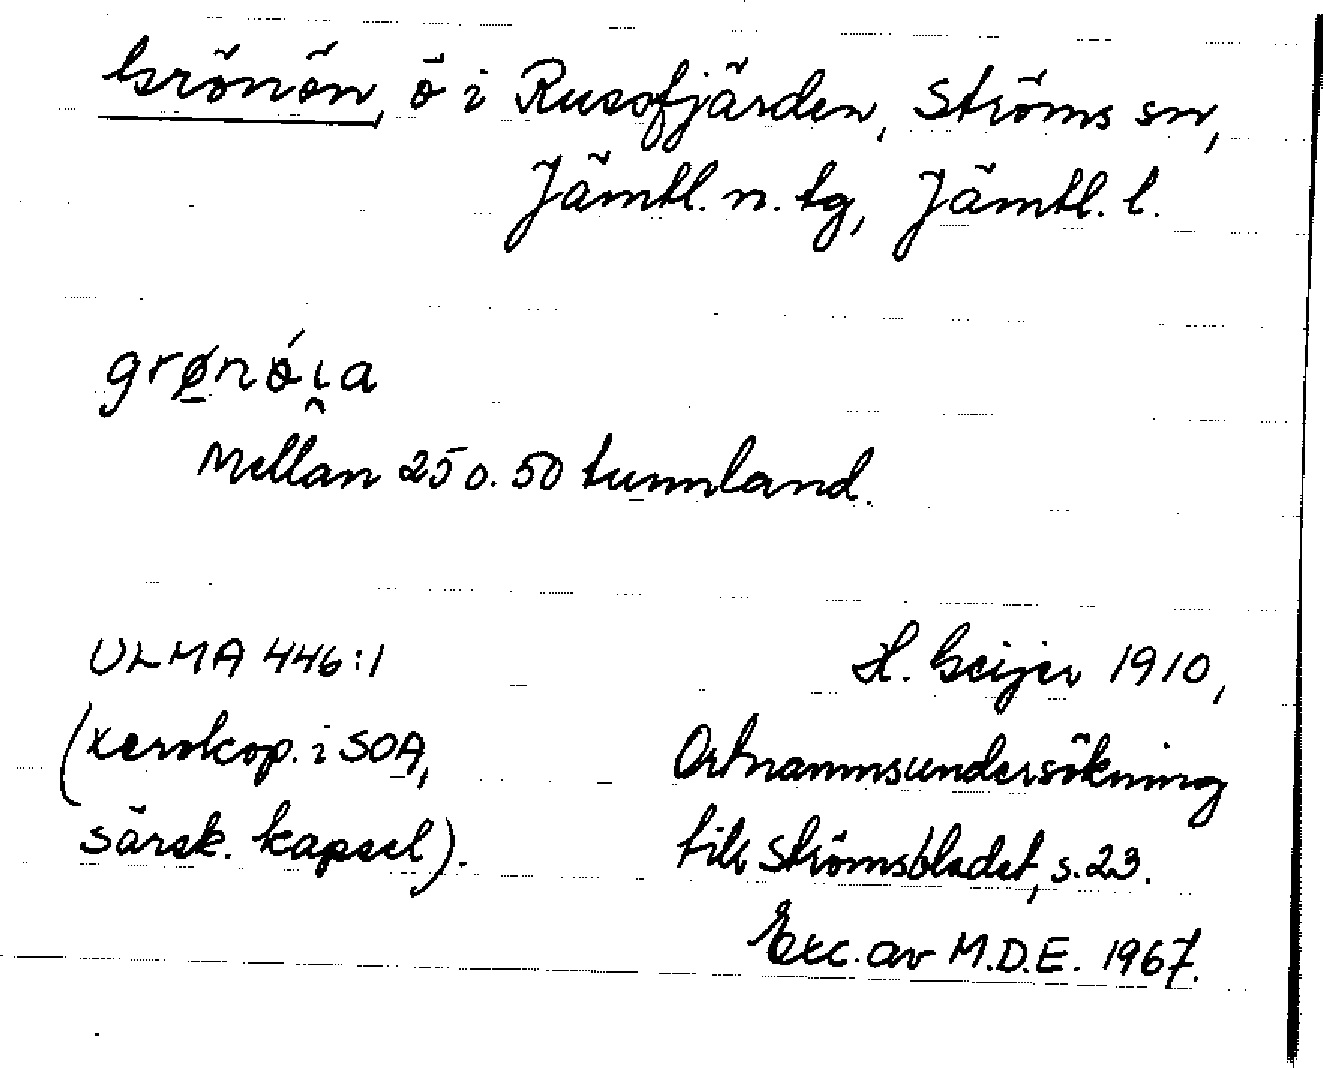 Grönön, ö i Russfjärden, Ströms sn,
Jämtl. n. tg, Jämtl. l.
grø̲nǿi̯a
Mellan 25 o. 50 tunnland.
ULMA 446:1
(xerokop. i SOA,
särsk. kapsel).
H. Geijer 1910,
Ortnamnsundersökning
till Strömsbladet, s. 23.
Exc. av M.D.E. 1967.